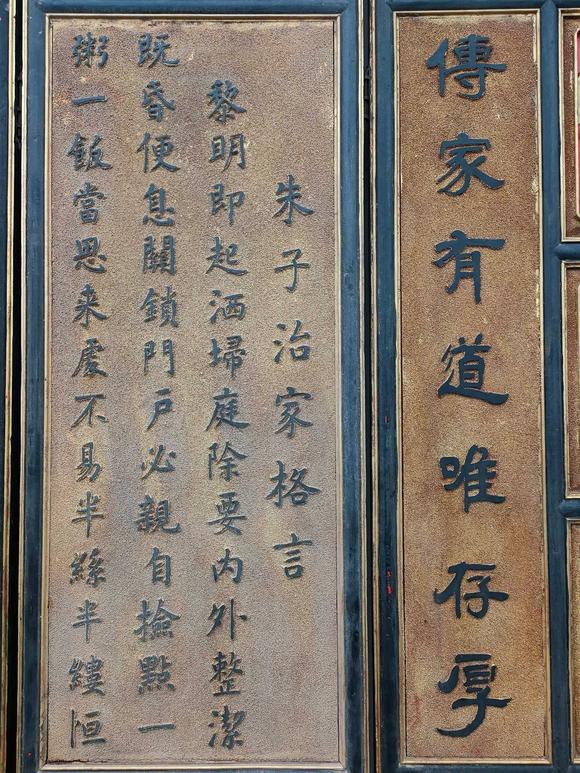 傳家有道唯存厚
朱子治家格言
黎明即起洒埽庭除要内外整潔
既昏便息關鎖門戶必親自撿點一
粥一飯當思来處不易半絲半縷恒